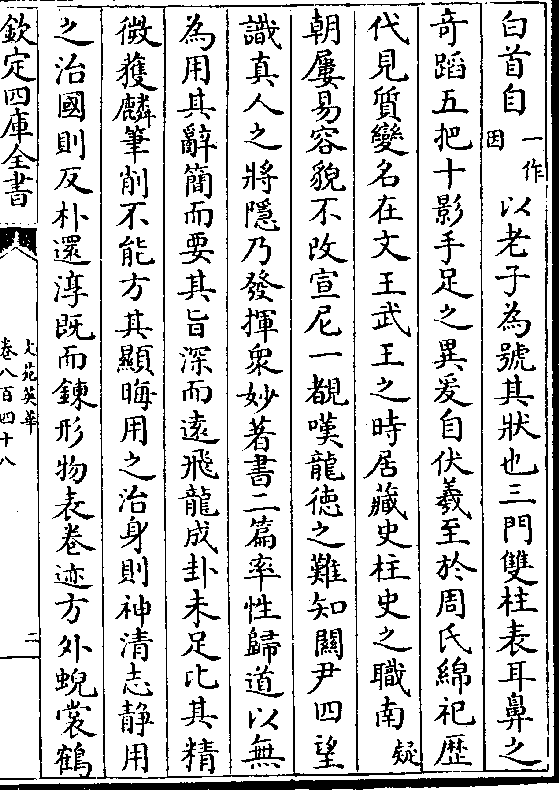 白首自一作因以老子為號其狀也三門雙柱表耳鼻之
奇蹈五把十影手足之異爰自伏羲至於周氏綿祀歴
代見質變名在文王武王之時居藏史柱史之職南疑
朝屢易容貌不改宣尼一覩嘆龍徳之難知關尹四望
識真人之將隱乃發揮衆妙著書二篇率性歸道以無
為用其辭簡而要其旨深而逺飛龍成卦未足比其精
微獲麟筆削不能方其顯晦用之治身則神清志静用
之治國則反朴還淳既而鍊形物表卷迹方外蜺裳鶴
欽定四庫全書
文苑英華
卷八百四十八
二